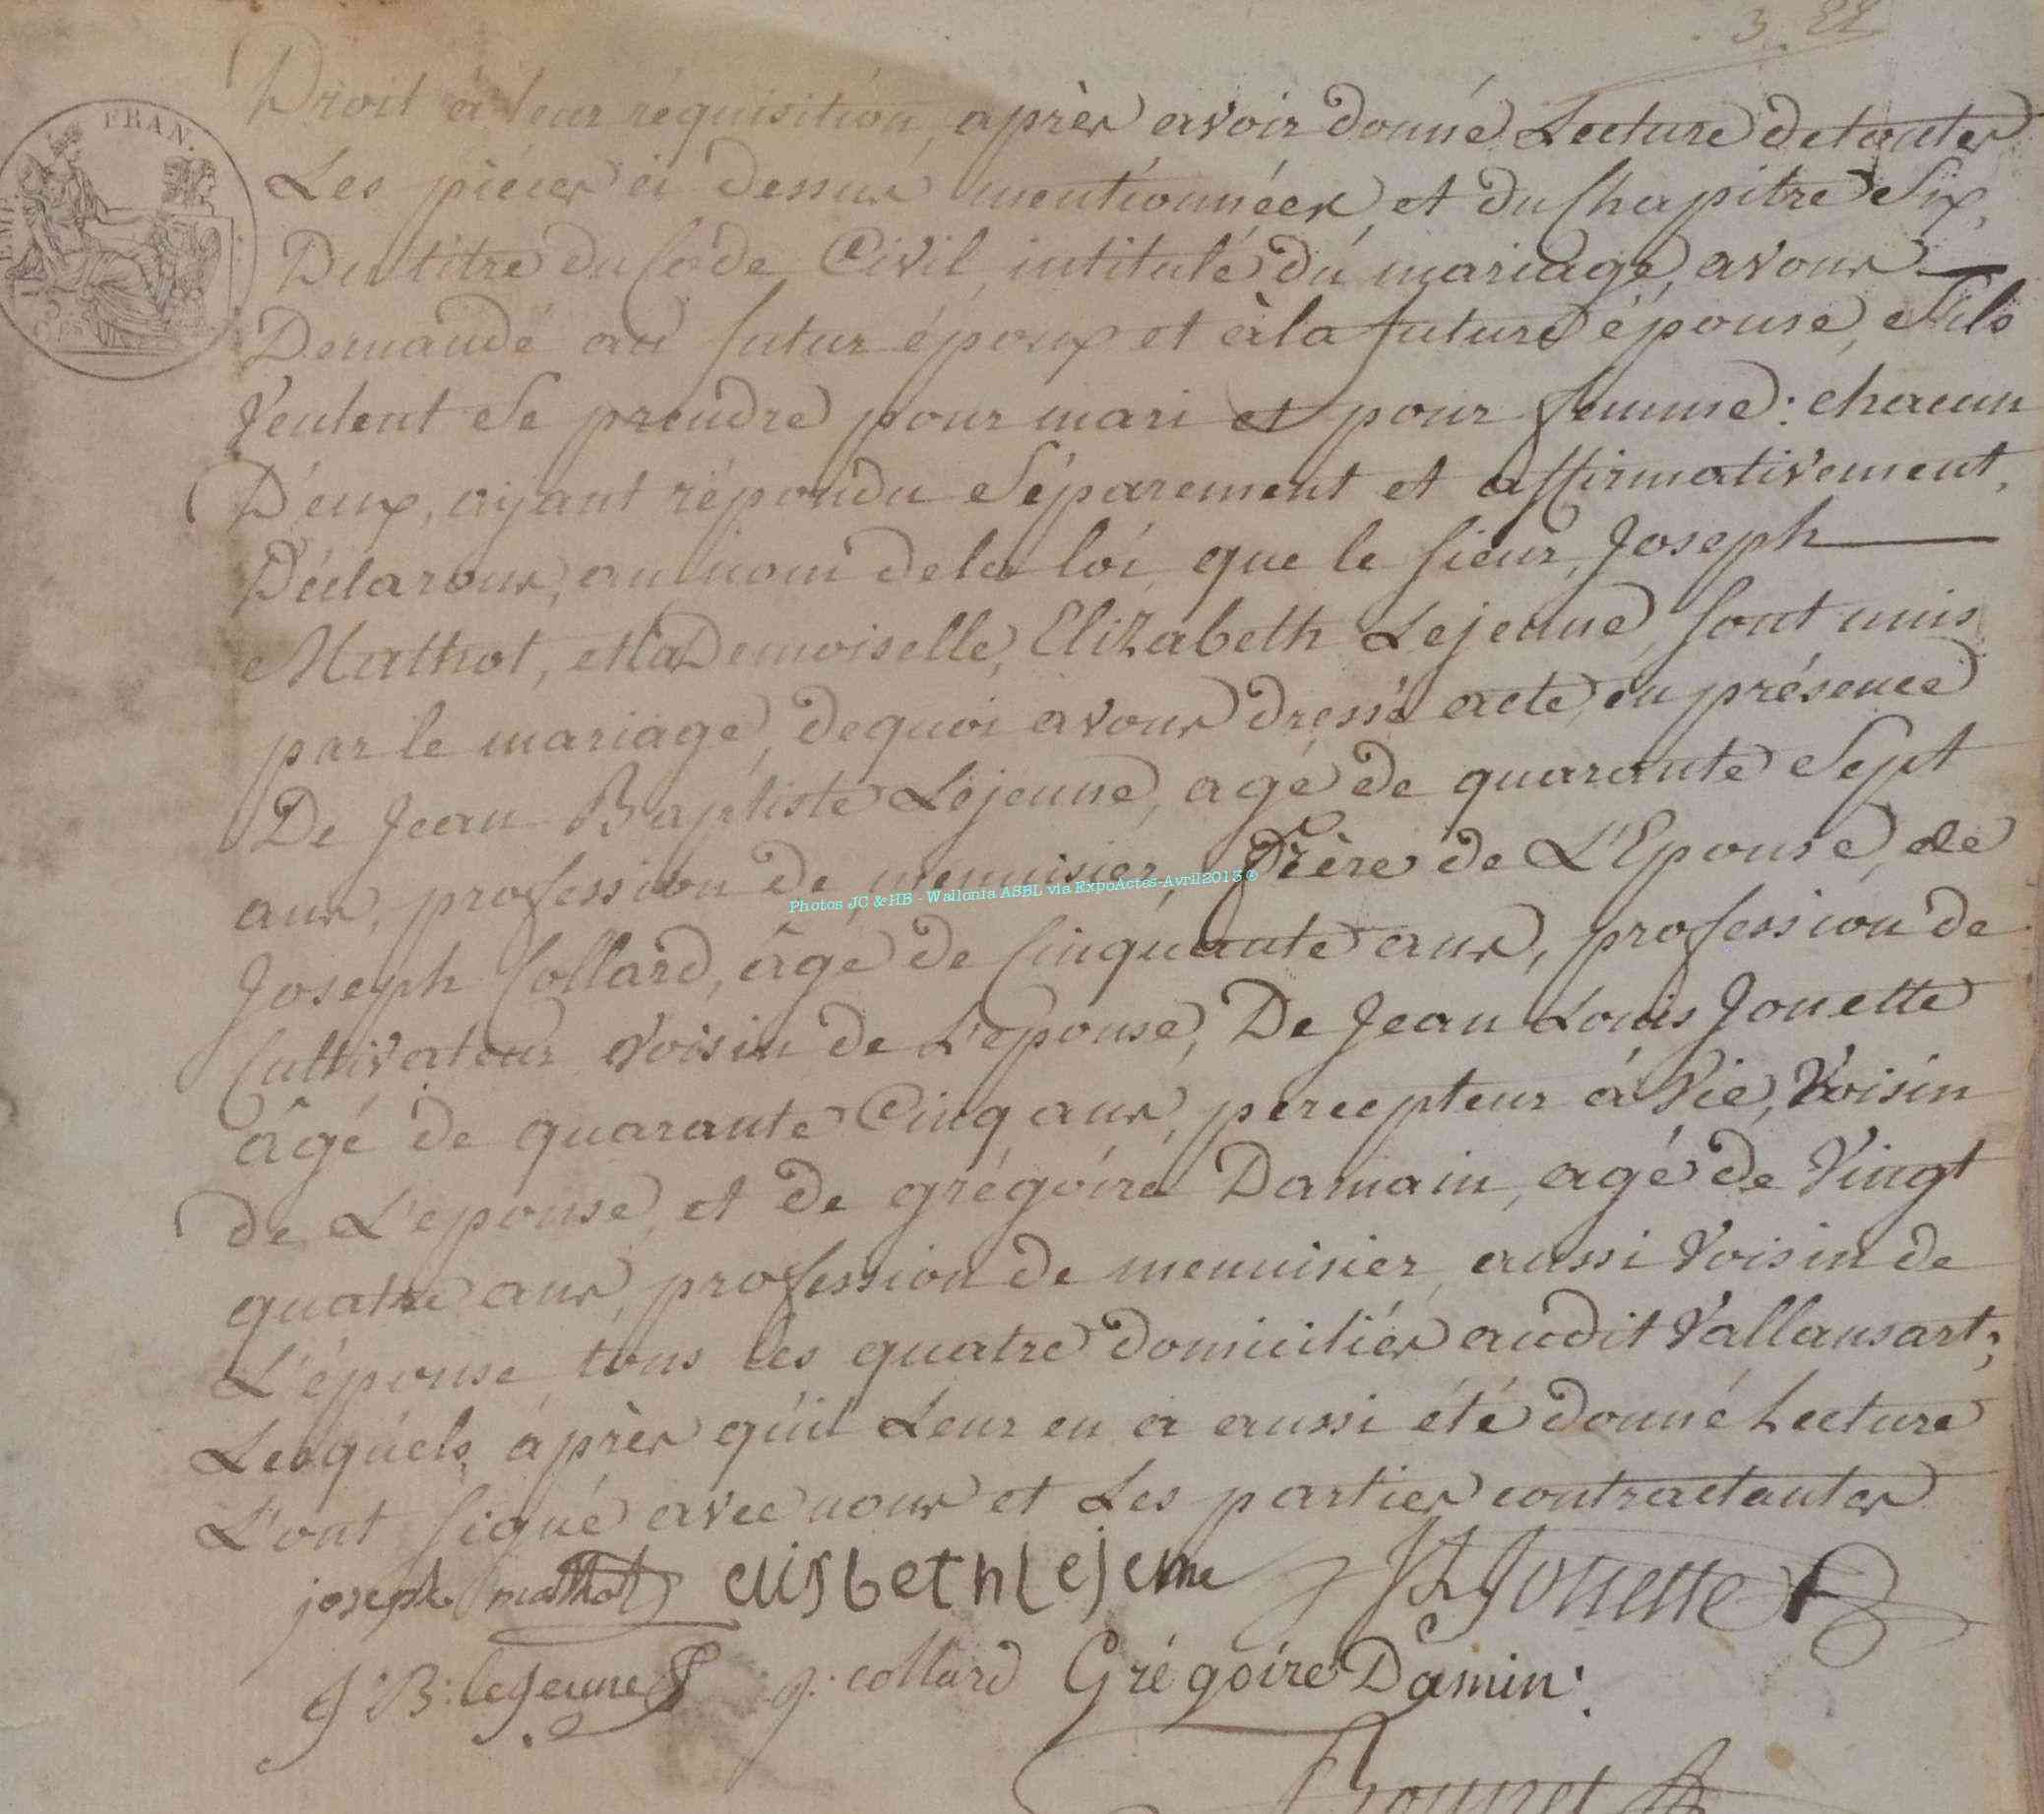 3. 22
FRAN.
Droit à leur réquisition, après avoir donné Lecture de toutes
Les pièces ci dessus mentionnées, et du Chapitre Six,
Du titre du Code Civil, intitulé du mariage, avons
Demandé au futur époux et à la future épouse, S'ils
Veulent Se prendre pour mari et pour femme: chacun
D'eux, ayant répondu Séparement et affirmativement,
Déclarons, au nom de la loi, que le sieur, Joseph
Mathot, et la Demoiselle, Elizabeth Lejeune, sont unis
par le mariage, de quoi avons dressé acte, en présence
De Jean Baptiste Lejeune, agé de quarante Sept
ans, profession de menuisier, Frère de L'Epouse, de
Joseph Collard, âgé de Cinquante ans, profession de
Cultivateur voisin de L'epouse, De Jean Louis Jouette
âgé de quarante Cinq ans, percepteur à Vie, Voisin
de L'epouse, et de grégoire Damain, agé de Vingt
quatre ans, profession de menuisier, aussi Voisin de
L'épouse, tous les quatre domiciliés audit Vallansart;
Lesquels, après qu'il Leur en a aussi été donné Lecture
L'ont signé avec nous et Les parties contractantes
joseph mathot elisbeth Lejeune JL Jouette
J: B: leJeune j: collard Grégoire Damin:
Photos JC & HB - Wallonia ASBL via ExpoActes-Avril2013 ©